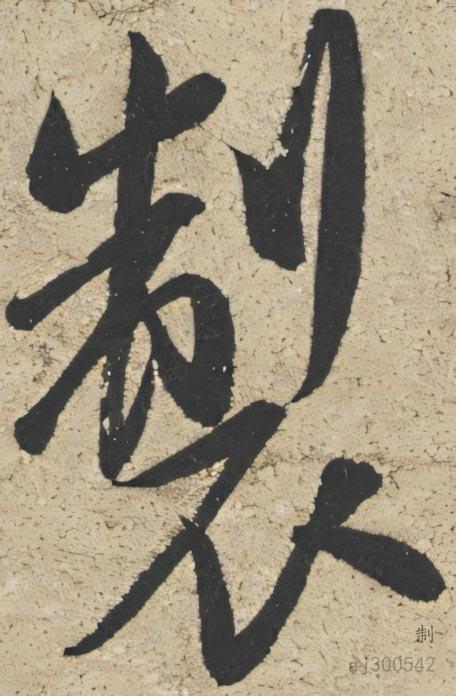 製
制
aj300542